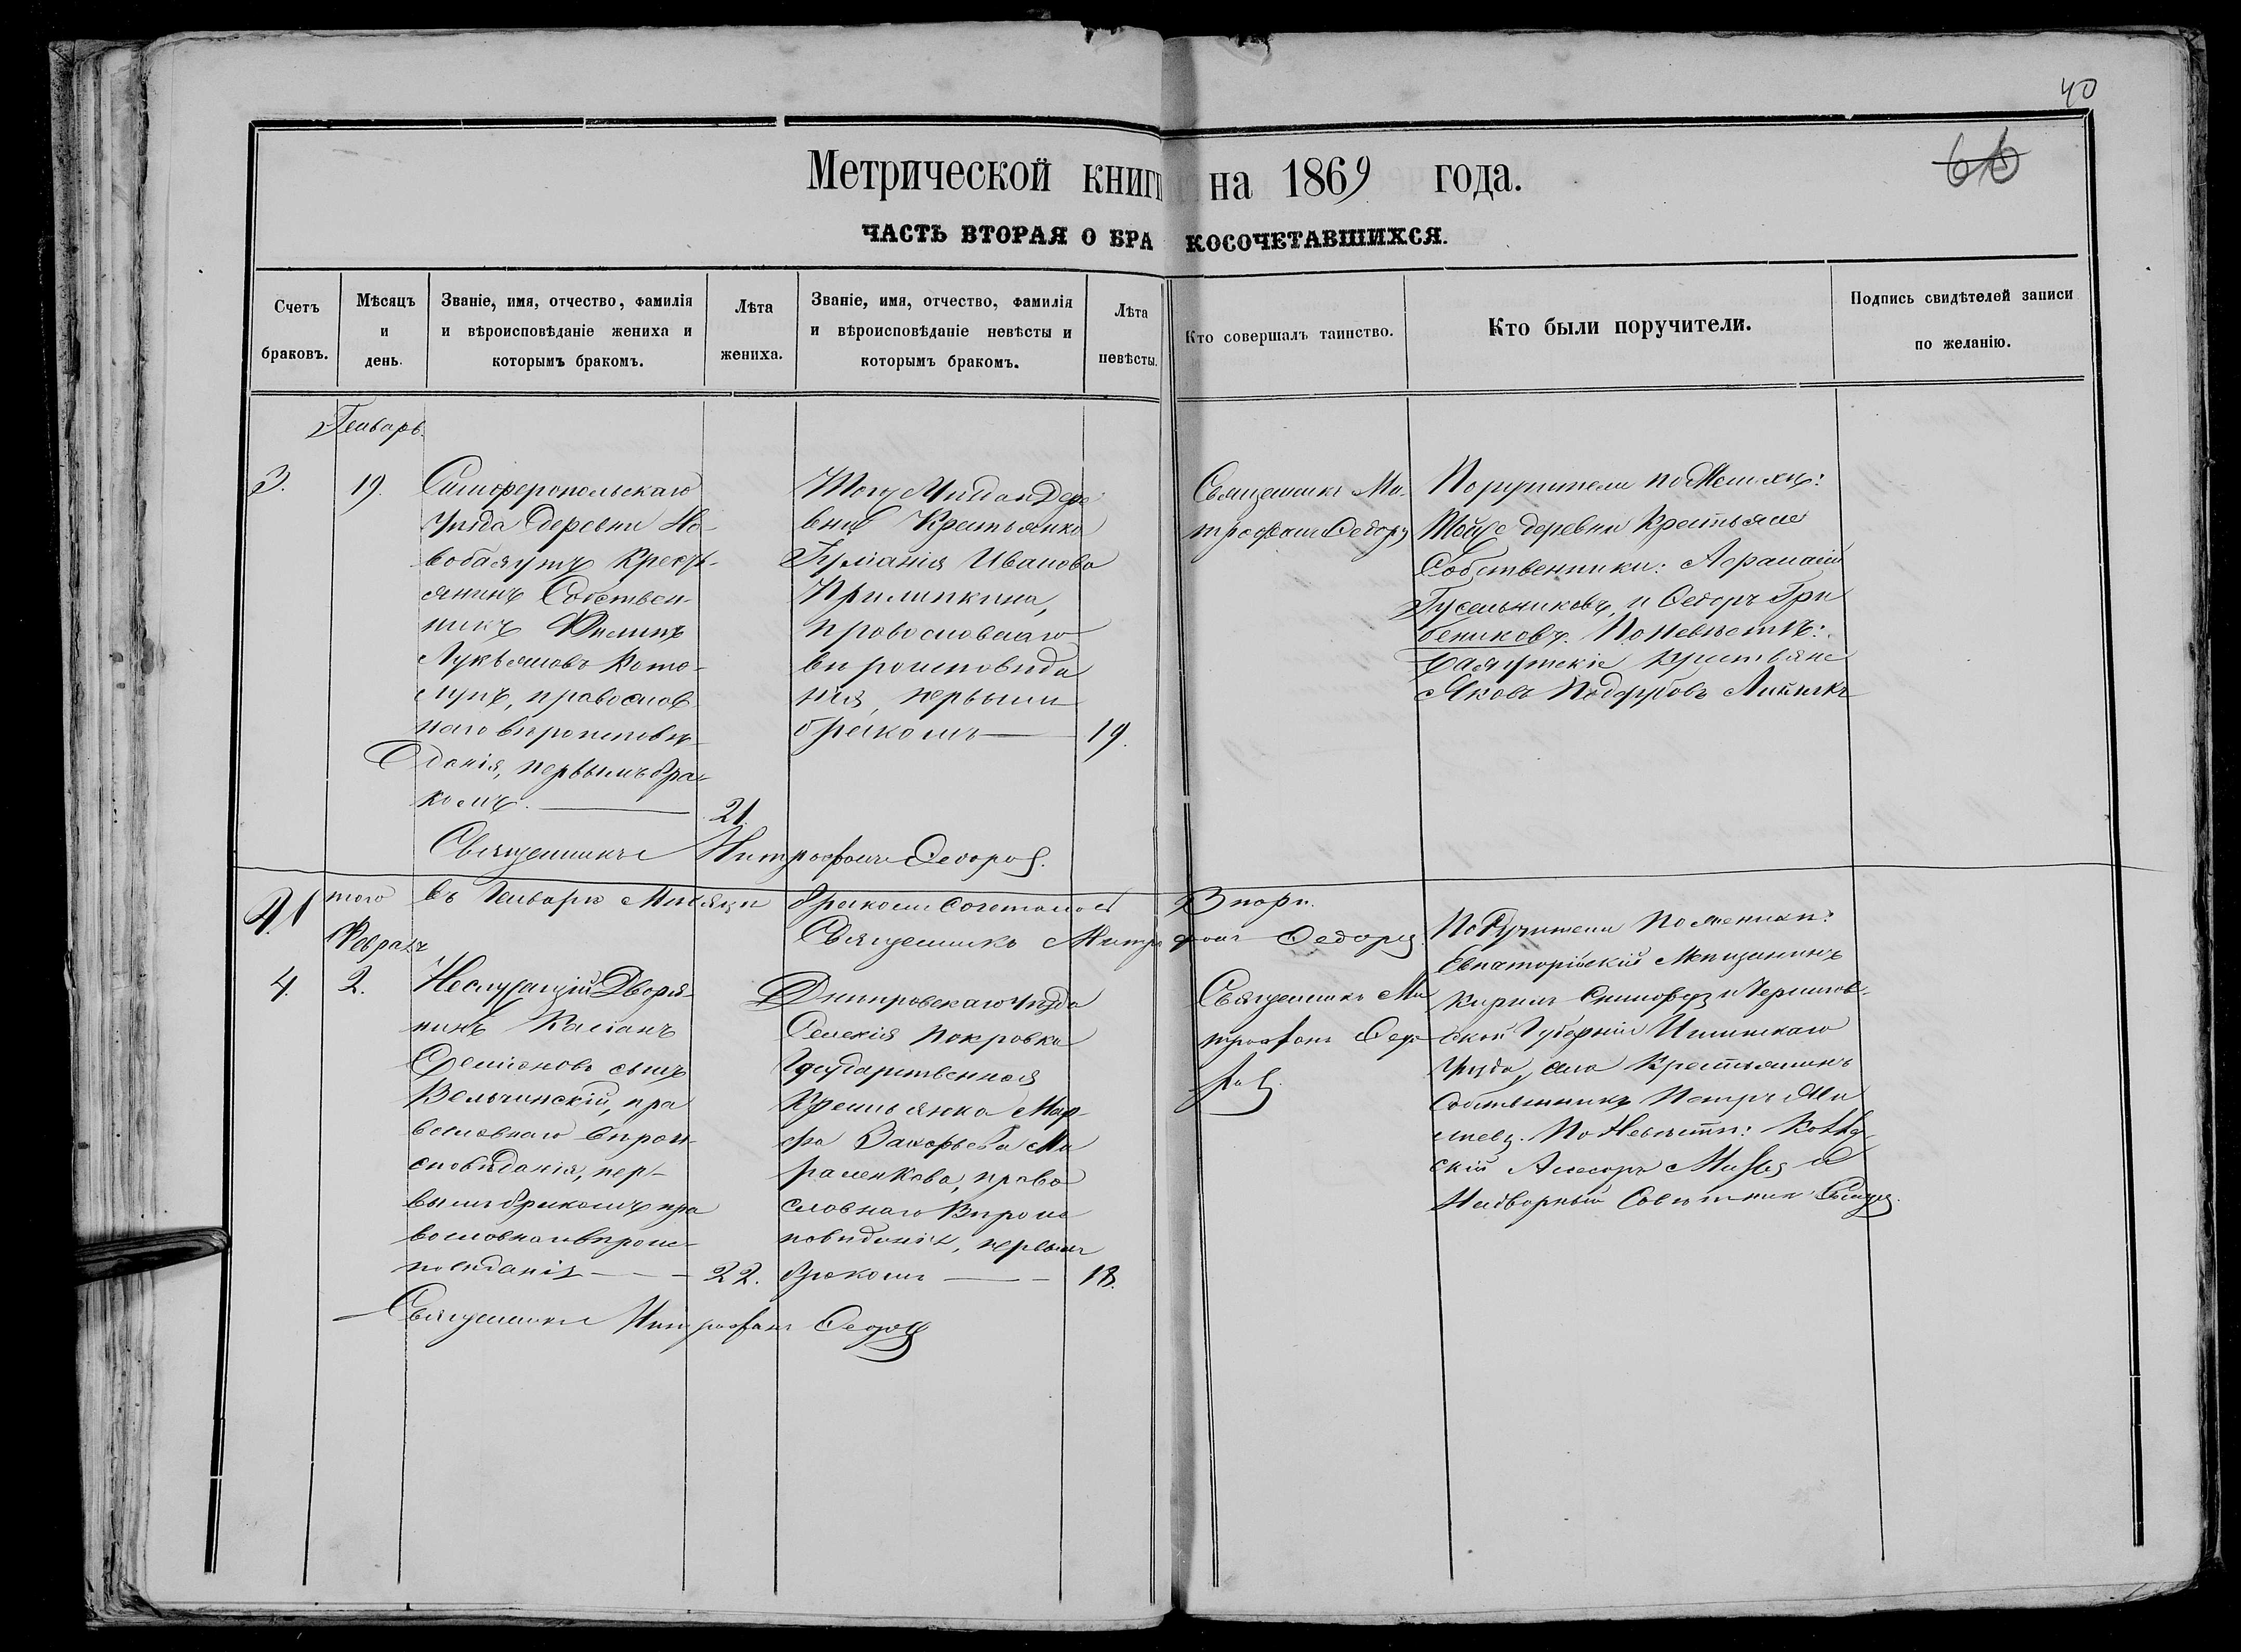 40
66
Метрической книги на 1869 года.
ЧАСТЬ ВТОРАЯ О БРАКОСОЧЕТАВШИХСЯ.
Счетъ
браковъ.
Мѣсяцъ
и
день.
Званіе, имя, отчество, фамилія
и вѣроисповѣданіе жениха и
которымъ бракомъ.
Лѣта
жениха.
Званіе, имя, отчество, фамилія
и вѣроисповѣданіе невѣсты и
которымъ бракомъ.
Лѣта
невѣсты.
Кто совершалъ таинство.
Кто были поручители.
Подпись свидѣтелей записи
по желанію.
Генварь.
3.
19.
Симферопольскаго
уѣзда деревни Но-
Кресть-
янинъ Собствен-
никъ Филипъ
Лукьяновъ
православ
наго вѣроисповѣ-
данія, первымъ бра-
комъ.
21.
дере-
вни Крестьянка
Иванова
Прилипкина,
православнаго
вѣроисповѣда
нія, первымъ
бракомъ
19.
Священникъ Ми-
трофанъ Федоровъ
Поручители по Женихѣ:
Тойже деревни Крестьяне
Собственники: Афанасій
Гусельниковъ и Федоръ Гри
бениковъ. По невѣстѣ:
Крестьяне
Яковъ
Священникъ Митрофанъ Федоровъ.
того въ Генварѣ Мѣсяцѣ бракомъ сочеталось 3 пары.
Священникъ Митрофанъ Федоровъ.
Февраль
4.
2.
Неслужащій Дворя-
нинъ Касіанъ
сынъ
Вельчинскій, пра
вославнаго вѣрои-
сповѣданія, пер-
вымъ бракомъ пра
вославнаго вѣроис-
повѣданія
22.
Днѣпровскаго уѣзда
Покровки
Государственная
Крестьянка Мар-
фа Захарьева Ма
раленкова, право
славнаго вѣроис
повѣданія, первымъ
бракомъ
18.
Священникъ Ми
трофанъ Федо-
ровъ.
Поручители по женихѣ:
Евпаторійскій Мѣщанинъ
Кирилъ и Чернигов-
ской Губерніи
Уѣзда, Крестьянинъ
Собственникъ Петръ
По Невѣстѣ:
скій Асесоръ и
Надворный Совѣтникъ
Священникъ Митрофанъ Федоровъ